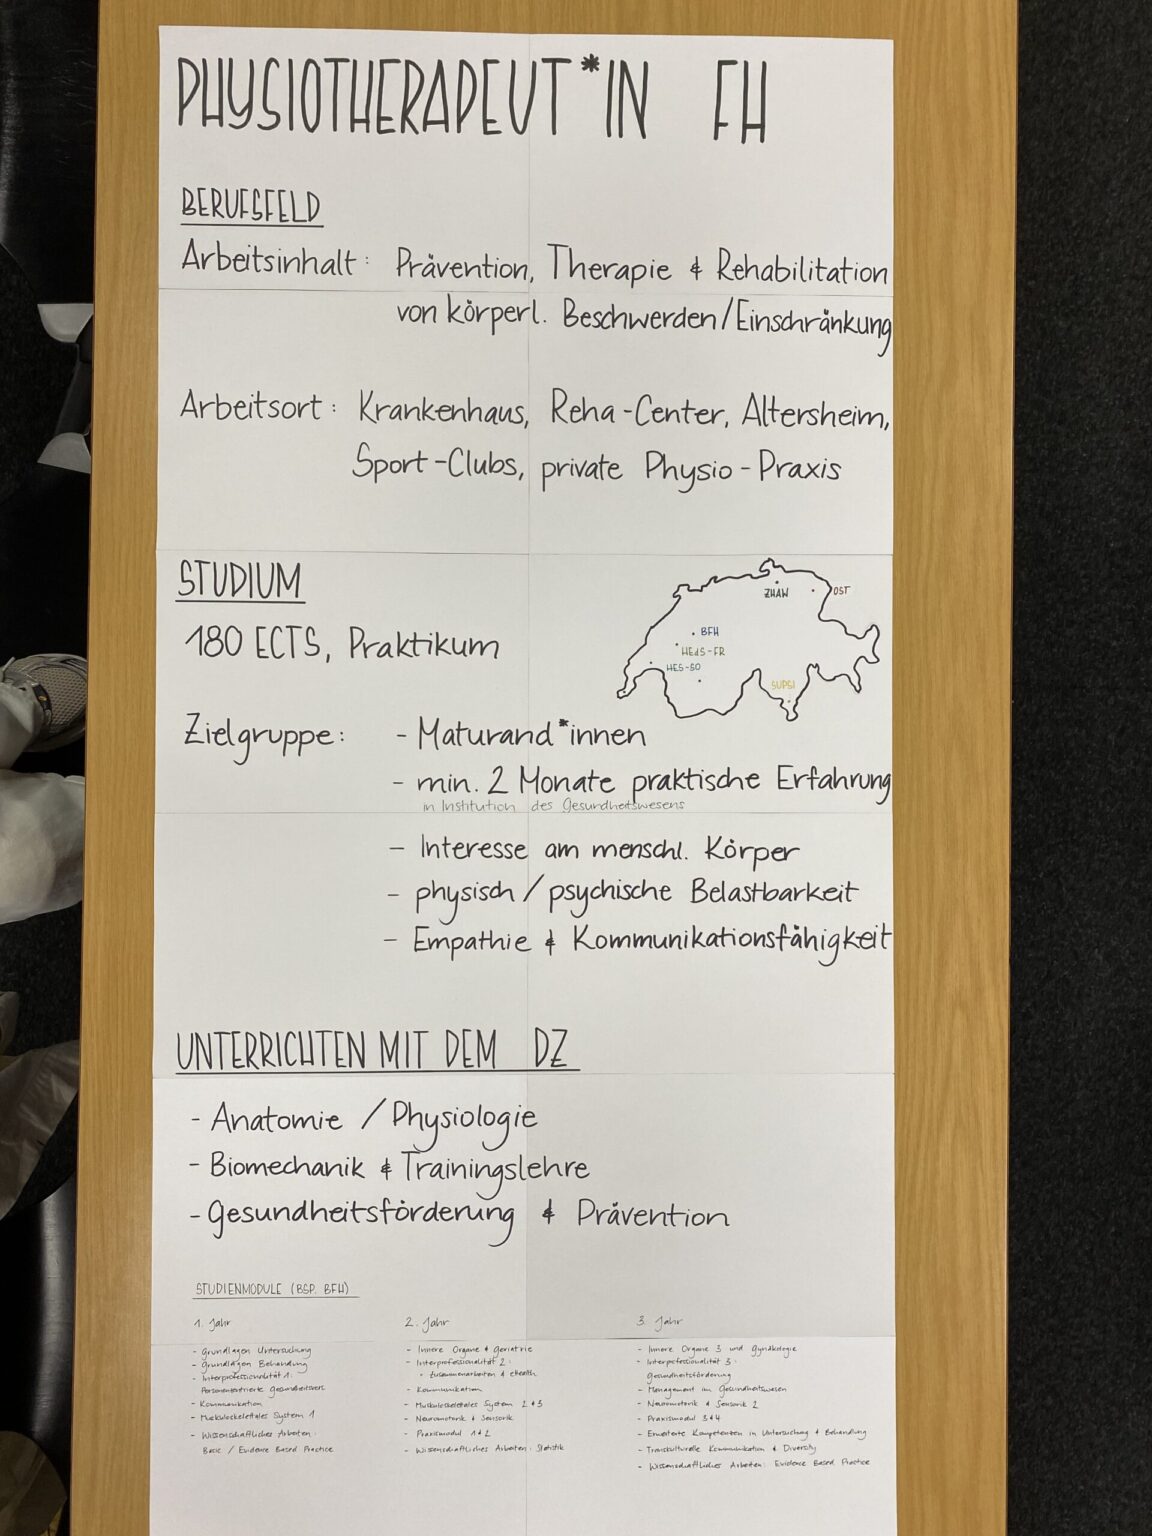 PHYSIOTHERAPEUT*IN FH
BERUFSFELD
Arbeitsinhalt: Prävention, Therapie & Rehabilitation
von körperl. Beschwerden/Einschränkung
Arbeitsort: Krankenhaus, Reha-Center, Altersheim,
Sport-Clubs, private Physio-Praxis
STUDIUM
180 ECTS, Praktikum
ZHAW
OST
BFH
HEdS-FR
HES-SO
SUPSI
Zielgruppe: - Maturand*innen
- min. 2 Monate praktische Erfahrung
in Institution des Gesundheitswesens
- Interesse am menschl. Körper
- physisch/psychische Belastbarkeit
- Empathie & Kommunikationsfähigkeit
UNTERRICHTEN MIT DEM DZ
- Anatomie / Physiologie
- Biomechanik & Trainingslehre
- Gesundheitsförderung & Prävention
STUDIENMODULE (BSP. BFH)
1. Jahr
- Grundlagen Untersuchung
- Grundlagen Behandlung
- Interprofessionalität 1:
Personenzentrierte Gesundheitsvers.
- Kommunikation
- Muskuloskelettales System 1
- Wissenschaftliches Arbeiten:
Basic / Evidence Based Practice
2. Jahr
- Innere Organe & Geriatrie
- Interprofessionalität 2:
• Zusammenarbeiten & eHealth
- Kommunikation
- Muskuloskelettales System 2 & 3
- Neuromotorik & Sensorik
- Praxismodul 1 & 2
- Wissenschaftliches Arbeiten: Statistik
3. Jahr
- Innere Organe 3 und Gynäkologie
- Interprofessionalität 3:
Gesundheitsförderung
- Management im Gesundheitswesen
- Neuromotorik & Sensorik 2
- Praxismodul 3 & 4
- Erweiterte Kompetenzen in Untersuchung & Behandlung
- Transkulturelle Kommunikation & Diversity
- Wissenschaftliches Arbeiten: Evidence Based Practice